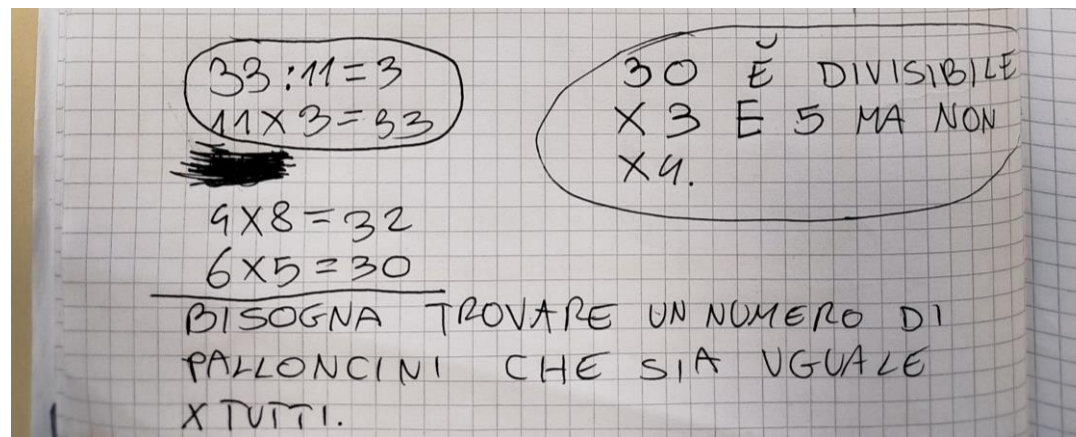 33:11=3
11X3=33
4X8=32
6X5=30
30 É DIVISIBILE
X 3 E 5 MA NON
X4.
BISOGNA TROVARE UN NUMERO DI
PALLONCINI CHE SIA UGUALE
X TUTTI.